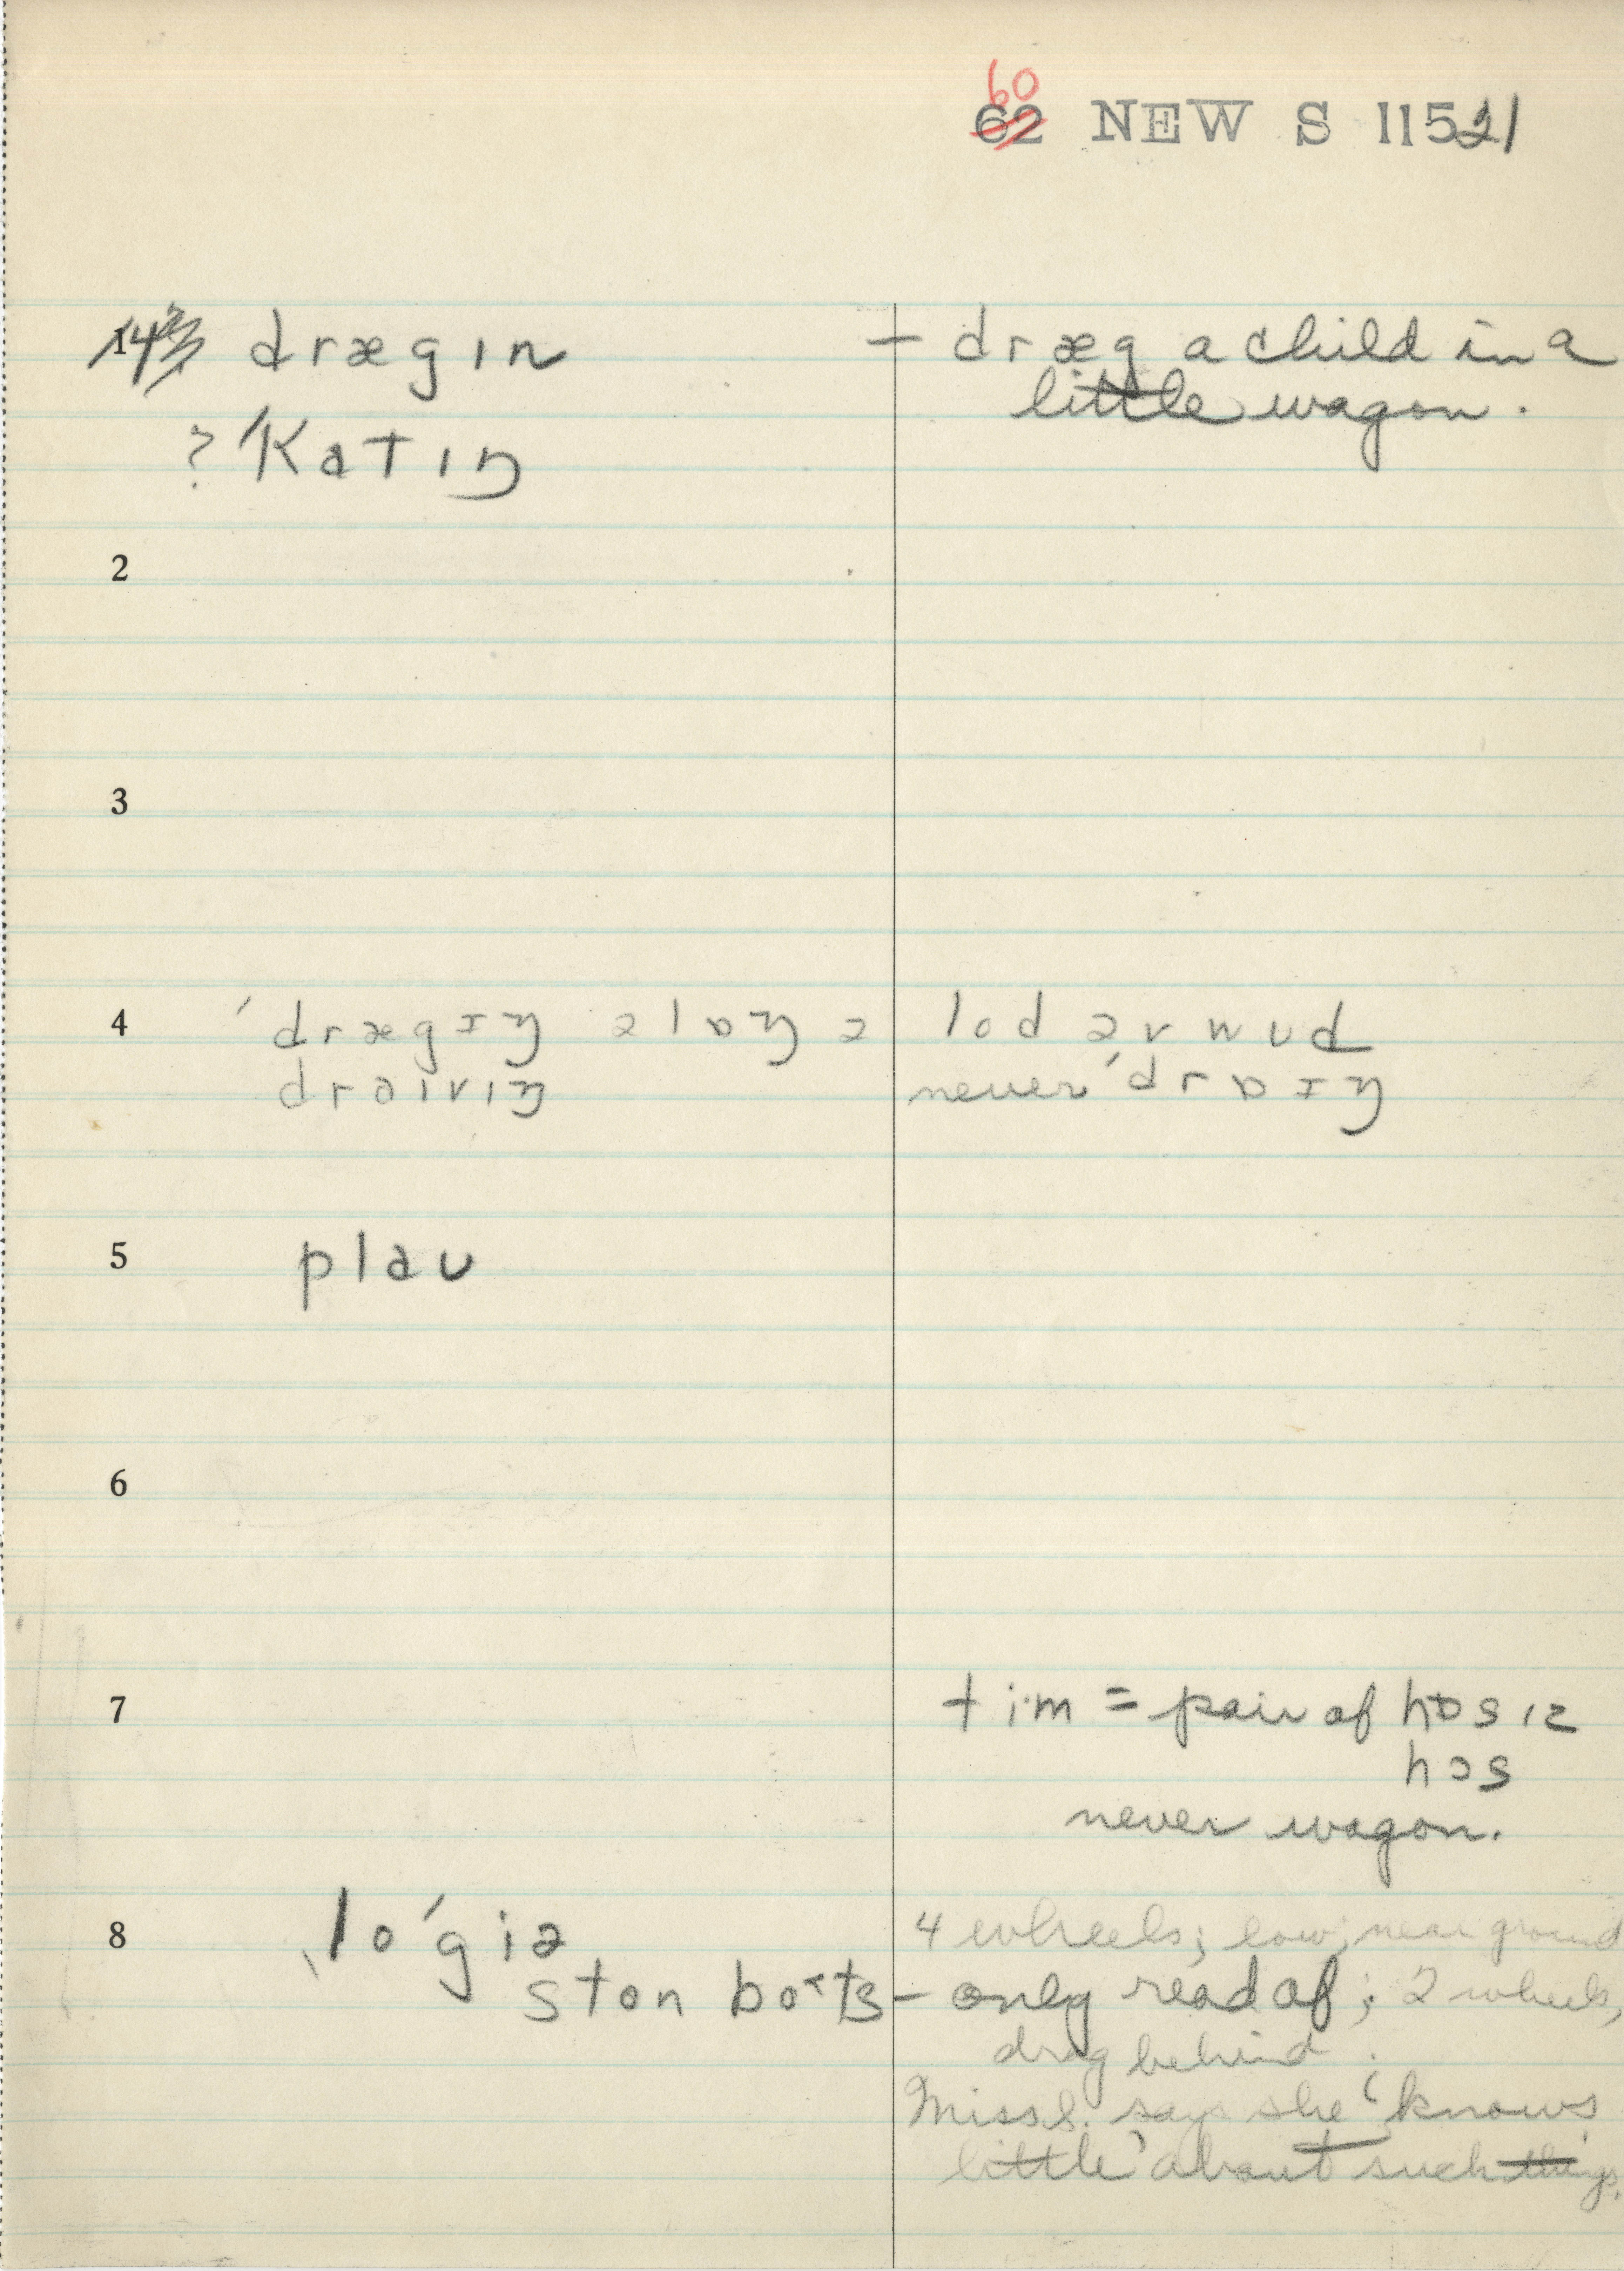 60
62 NEW S 11521
1 drægɪn – dræg a child in a
little wagon.
? ˈkatɪŋ
2
3
4 ˈdrægɪŋ əlɒŋ ə lod əv wʊd
draɪvɪŋ never ˈdrɒɪŋ
5 plaʊ
6
7 tim = pair of hɒsɪz
hɔs
never wagon.
8 loˈgiə 4 wheels; low, near ground
ston bots – only read of; 2 wheels,
drag behind.
Miss S. says she knows
little about such things.